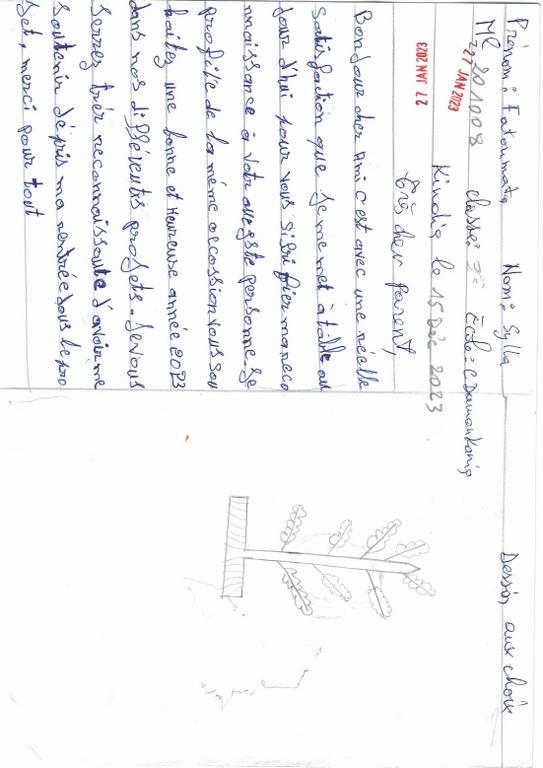 Prénom: Fatoumata Nom: Sylla
Dessin aux choix
MR 201008 classe: 3è École: C Damankania
22 JAN 2023
22 JAN 2023
Kindia le 15 Déc 2023
très cher parent,
Bonjour cher Ami c'est avec une réelle
satisfaction que je me met à table au
jour d'hui pour vous signifier ma reco
nnaissance à votre auguste personne. Je
profite de la même occassion vous sou
haitez une bonne et Heureuse année 2023
dans nos différents projets. Je vous
serrez trèr reconnaissante d'avoir me
soutenir dépris ma rentrée dans le pro
jet, merci pour tout